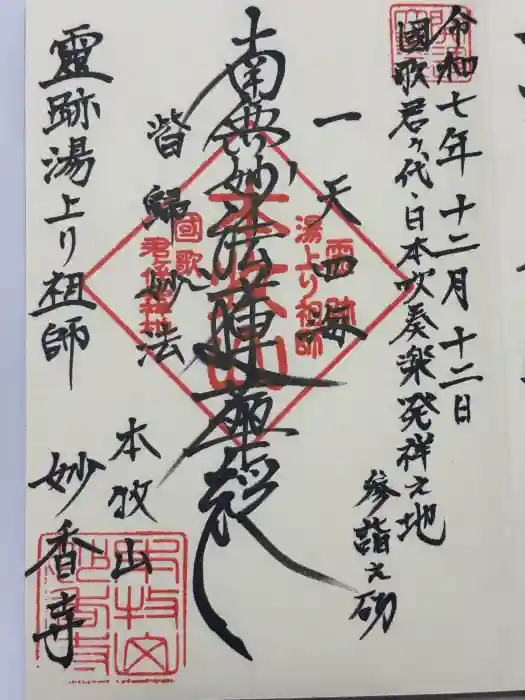 令和七年十二月十二日
國歌君が代・日本吹奏楽発祥之地
参詣之砌
一天四海
南無妙法蓮華経
皆歸妙法
靈跡湯上り祖師
本牧山
妙香寺
靈跡
湯上り祖師
國歌
本牧山
妙香寺